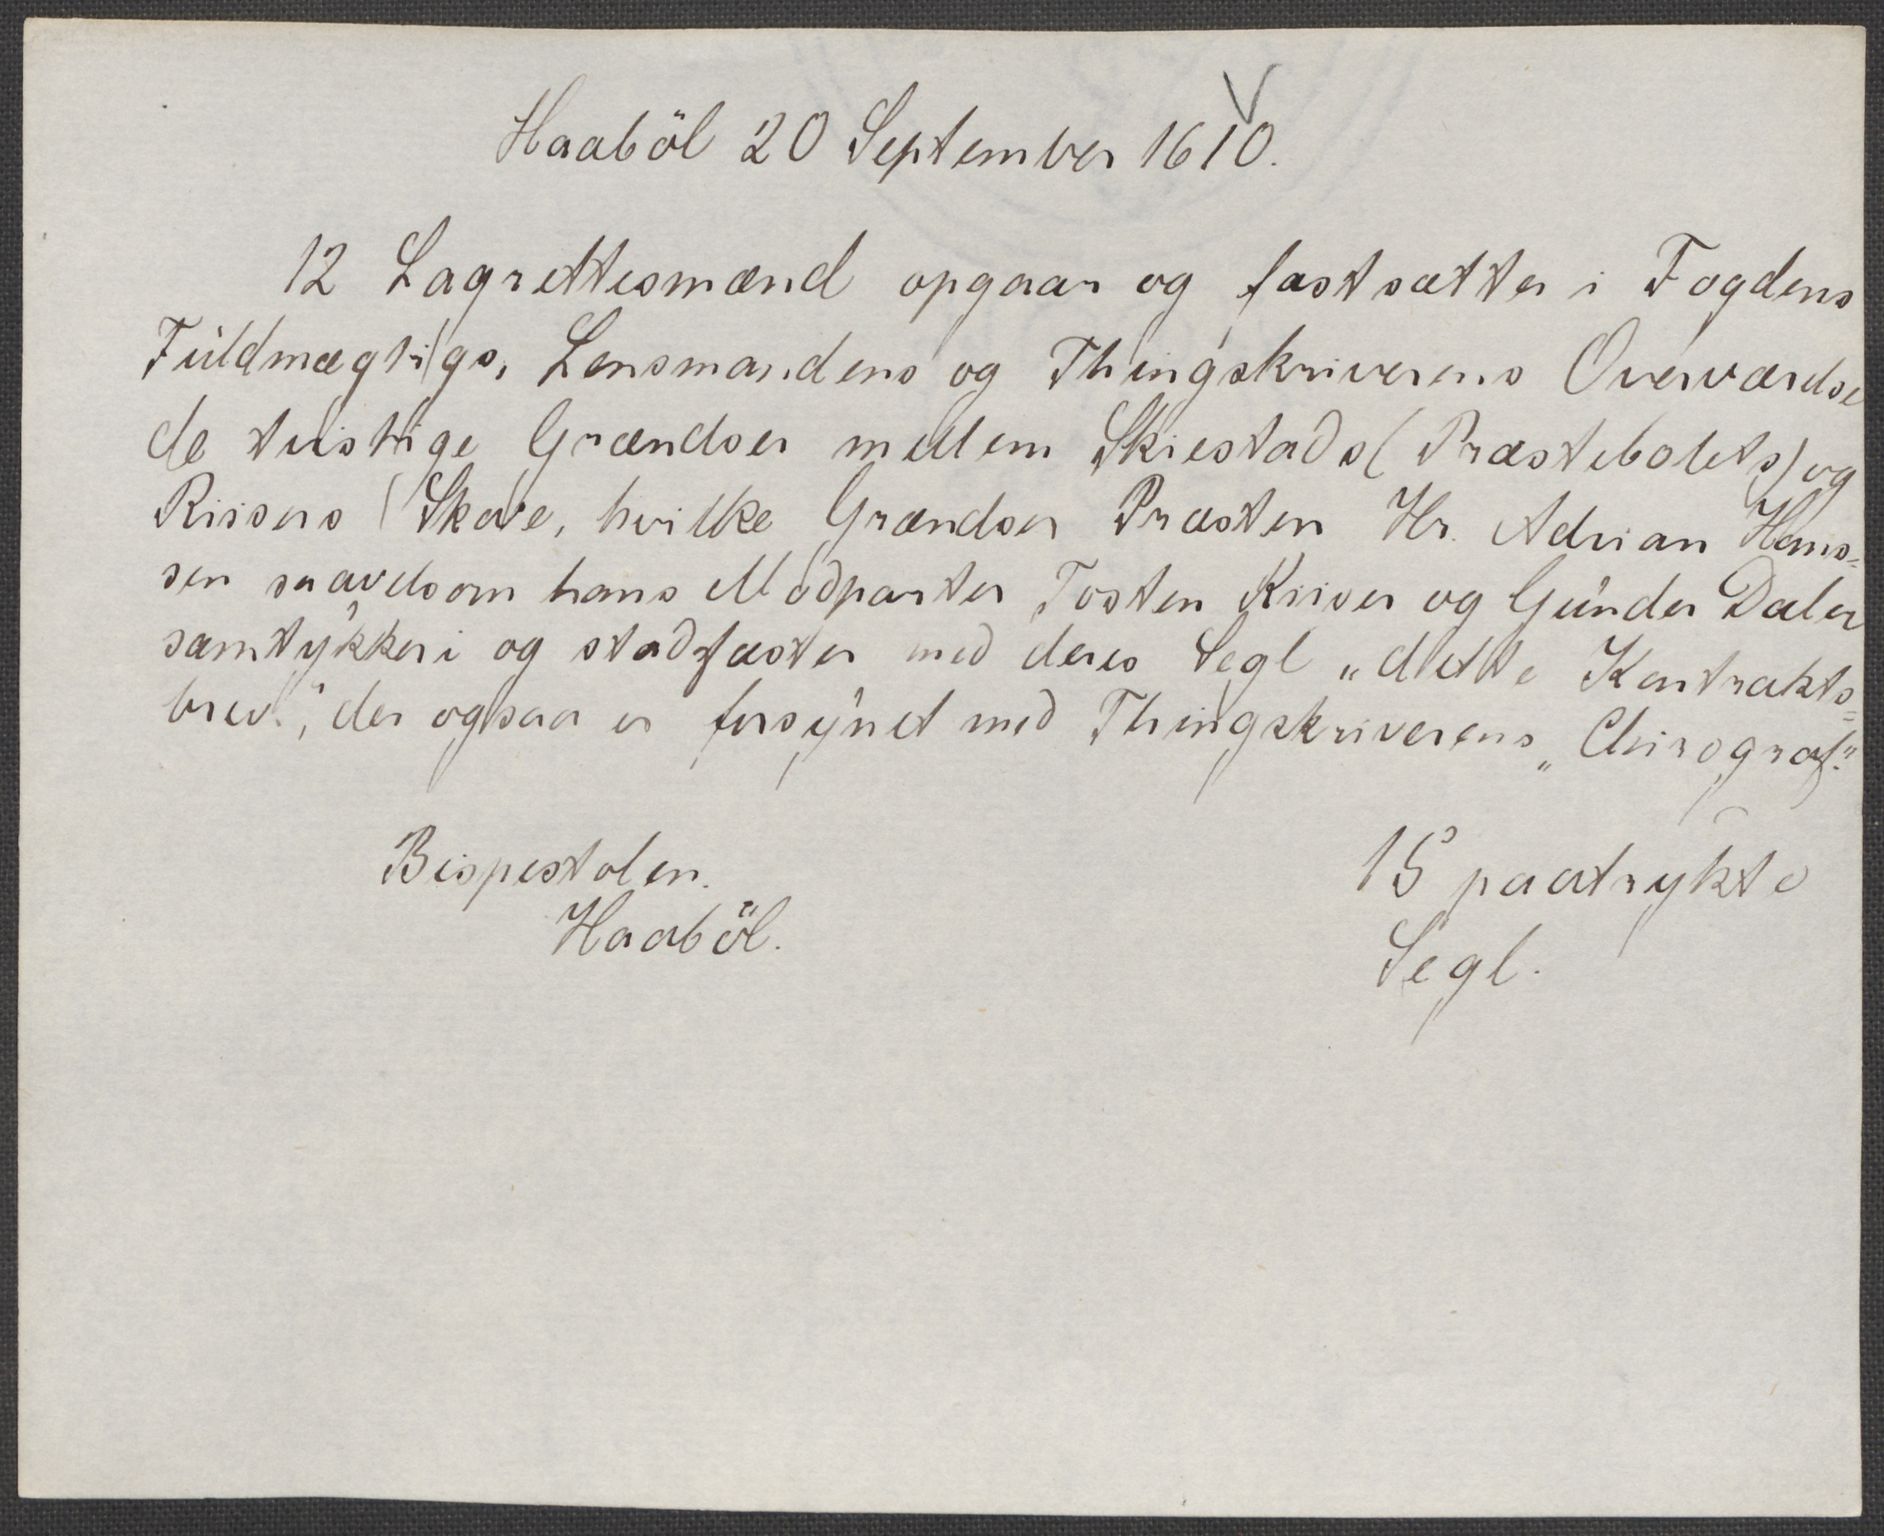 Haaböl 20 September 1610.
12 Lagrettesmænd opgaar og fastsætter i Fogdens
Fuldmægtigs, Lensmandens og Thingskriverens Overværdse
de tvistige Grændser mellem Skiestads (Præstebolets) og
Riisers Skove, hvilke Grændser Præsten Hr. Adrian Hans=
sen saavelsom hans Modparter Tosten Riiser og Gunder Dæler
samtykker i og stadfæster med deres Segl „dette Kontrakts=
brev“, der ogsaa er forsynet med Thingskriverens „Chirograf.“
Bispestolen.
Haaböl.
15 paatrykte
Segl.